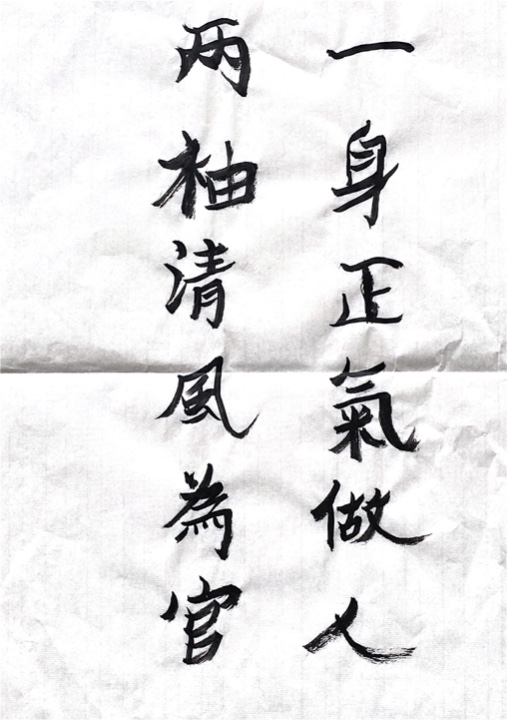 一身正氣做人
两袖清風為官